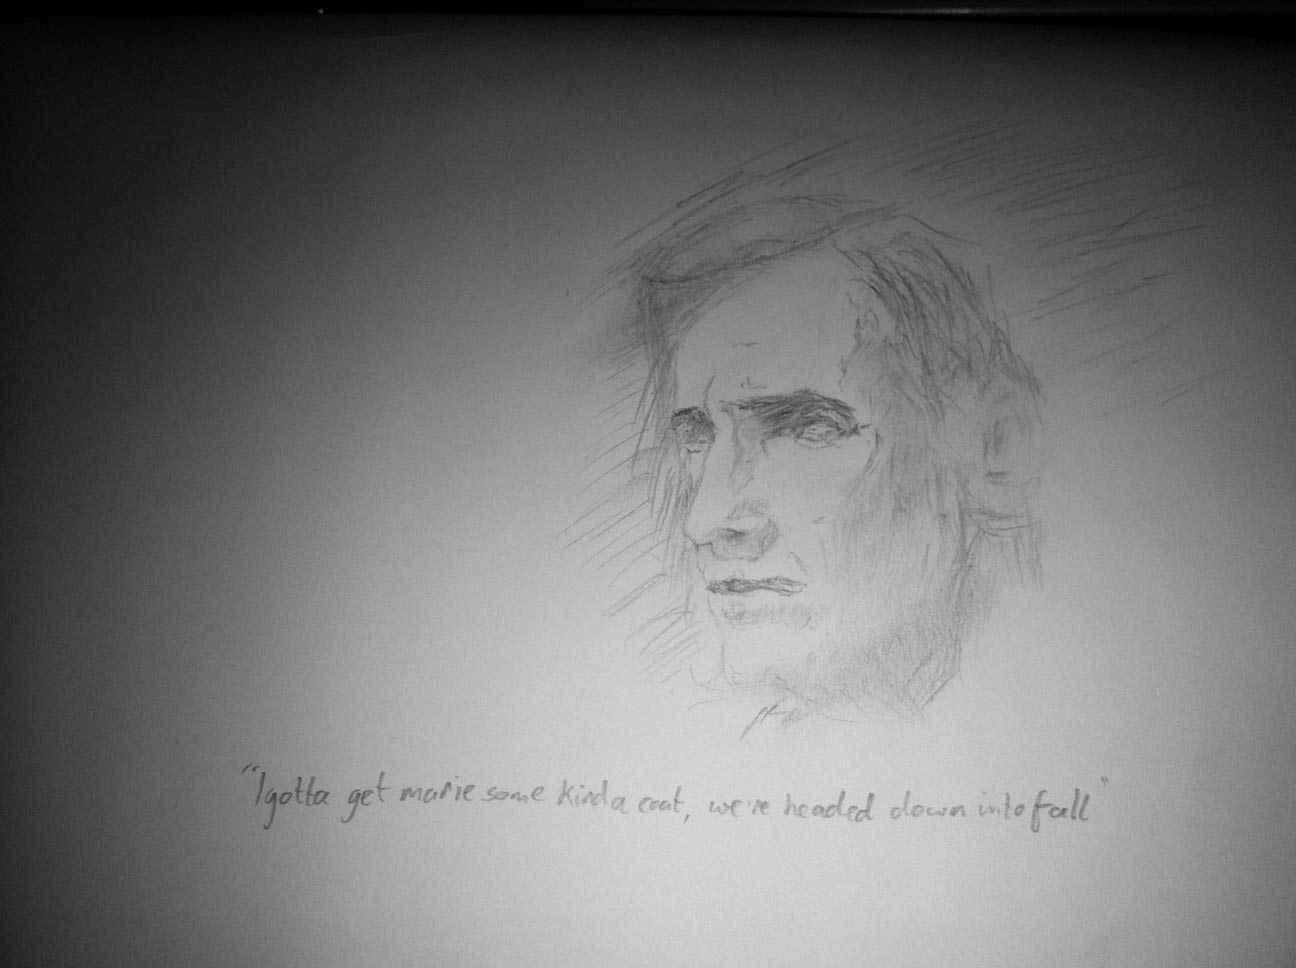 "I gotta get marie some kinda coat, we're headed down into fall"